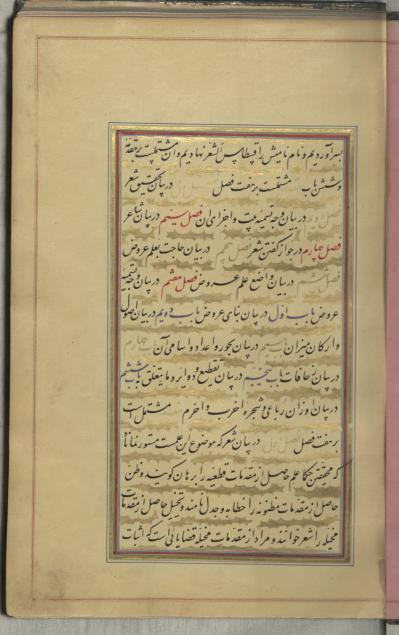 بسر آوردیم و نام نامیش را قسطاس الشعر نهادیم و آن مشتملست بر مقدمه
و شش باب مشتملست بر هفت فصل در بیان تحقیق شعر
فصل دویم در بیان وجه تسمیه و اجرای آن فصل سیم در بیان شاعر
فصل چهارم در جواز گفتن شعر فصل پنجم در بیان حاجت بعلم عروض
فصل ششم در بیان واضع علم عروض فصل هفتم در بیان وجه تسمیه
عروض باب اول در بیان بنای عروض باب دویم در بیان اصول
و ارکان میزان باب سیم در بیان بحور و اعداد و اسامی آن باب چهارم
در بیان زحافات باب پنجم در بیان تقطیع و دوایر و ما یتعلق به باب ششم
در بیان اوزان رباعی و شجره اخرب و اخرم مشتمل است
بر هفت فصل فصل اول در بیان شعر که موضوع این علمست مستور نماناد
که محققین حکما علم حاصل از مقدمات قطعیه را برهان گویند و ظن
حاصل از مقدمات مظنونه را خطابه و جدل نامند و تخیل حاصل از مقدمات
مخیله را شعر خوانند و مراد از مقدمات مخیله قضایائی است که اثبات